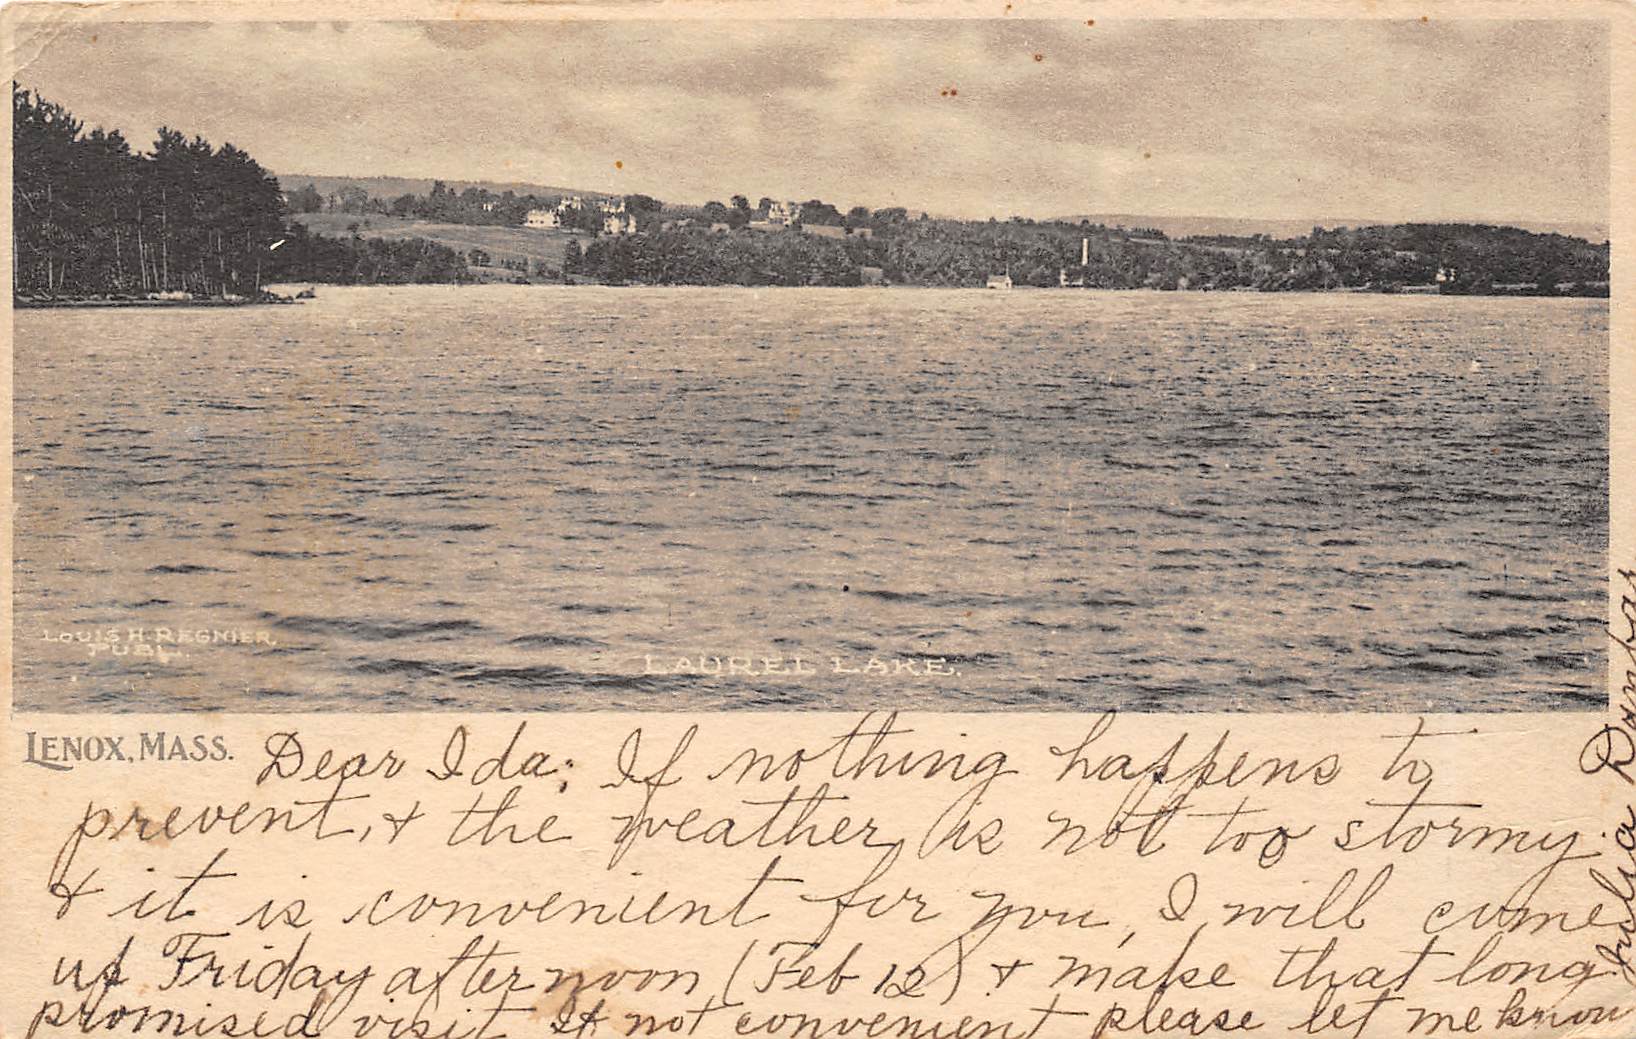 LOUIS H. REGNIER.
PUBL.
LAUREL LAKE.
LENOX, MASS.
Dear Ida; If nothing happens to
prevent, & the weather is not too stormy
& it is convenient for you, I will come
up Friday afternoon (Feb 12) & make that long
promised visit If not convenient please let me know
Julia